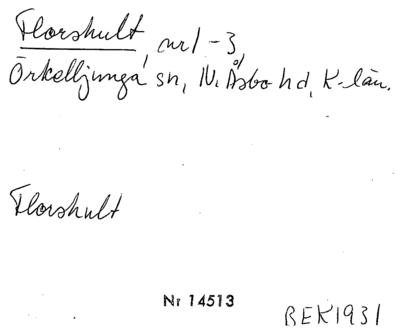 Florshult, nr 1-3,
Örkelljunga sn, N. Åsbo hd, K-län.
Florshult
Nr 14513
BEK1931